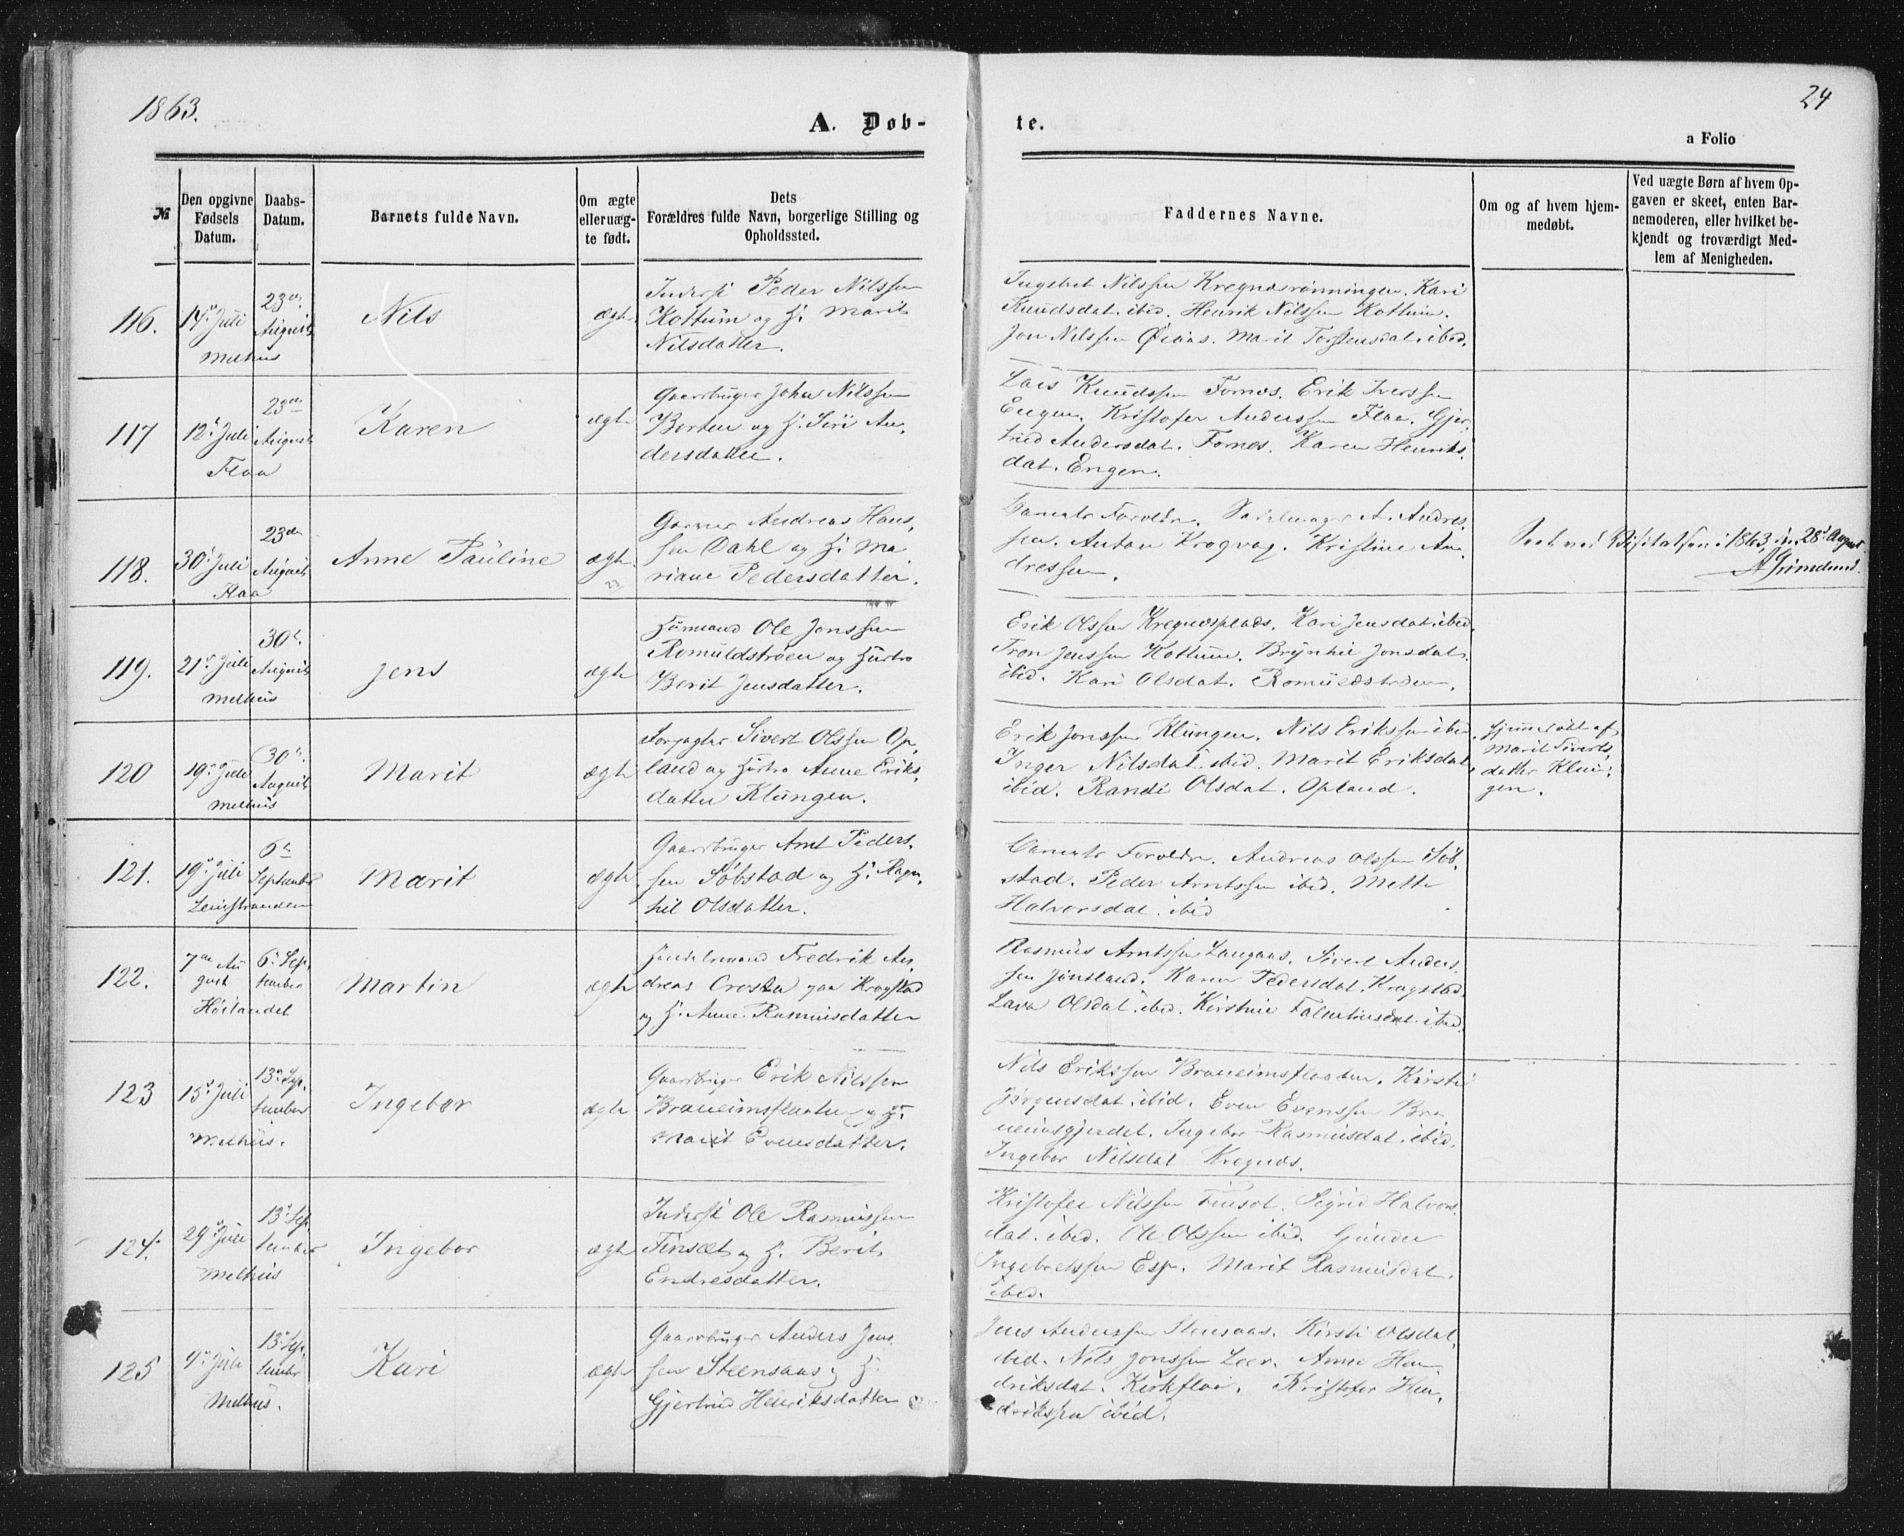 1863.
A. Døb-
te.
24
a Folio
№
Den opgivne
Fødsels
Datum.
Daabs-
Datum.
Barnets fulde Navn.
Om ægte
elleruæg-
te født.
Dets
Forældres fulde Navn, borgerlige Stilling og
Opholdssted.
Faddernes Navne.
Om og af hvem hjem-
medøbt.
Ved uægte Børn af hvem Op-
gaven er skeet, enten Bar-
nemoderen, eller hvilket be-
kjendt og troværdigt Med-
lem af Menigheden.
116.
14de Juli
Melhus
23de
August
Nils
ægte
Inderst Peder Nilssen
Kottum og H. Marit
Nilsdatter.
Ingebret Nilssen Kregnæsrønningen. Kari
Knudsdat. ibid. Henrik Nilssen Kottum.
Jon Nilssen Øiaas. Marit Torstensdat. ibid.
117
12te Juli
Flaa
23de
August
Karen
ægte
Gaardbruger John Nilssen
Borten og H. Siri An-
dersdatter.
Lars Knudssen Fornes. Erik Iverssen
Engen. Kristofer Anderssen Flaa. Gjer-
trud Andersdat. Fornes. Karen Henriks-
dat. Engen.
118.
30te Juli
Flaa
23de
August
Anne Pauline
ægte
Garver Andreas Hans-
sen Dahl og H. Ma-
riane Pedersdatter.
Barnets Forældre. Sadelmager A. Andres-
sen. Anton Krogvag. Kristine An-
dressen.
Seet ved Visitatsen i 1863, d. 28de August
AGrimelund.
119.
21de Juli
Melhus
30te
August
Jens
ægte
Husmand Ole Jonssen
Romuldstrøen og Hustro
Berit Jensdatter.
Erik Olssen Kregnæsplads. Kari Jensdat. ibid.
Tron Jenssen Kottum. Brynhil Jonsdat.
ibid. Kari Olsdat. Romuldstrøen.
120
19de Juli
Melhus
30te
August
Marit
ægte
Forpagter Sivert Olssen Op-
land og Hustro Anne Eriks-
datter Klungen.
Erik Jonssen Klungen. Nils Erikssen ibid.
Inger Nilsdat. ibid. Marit Eriksdat.
ibid. Randi Olsdat. Opland.
Hjemmedøbt af
Marit Siverts-
datter Klun-
gen.
121.
19de Juli
Leinstranden
6te
September
Marit
ægte
Gaardbruger Arnt Peders-
sen Søbstad og H. Ragn-
hil Olsdatter.
Barnets Forældre. Andreas Olssen Søb-
stad. Peder Arntssen ibid. Mette
Halvorsdat. ibid
122.
7de Au-
gust
Höilandet
6te Sep-
tember
Martin
ægte
Handelsmand Fredrik An-
dreas Crosta paa Krogstad
og H. Anne Rasmusdatter
Rasmus Arntssen Langaas. Sivert Anders-
sen Jønsland. Karen Pedersdat. Krogstad.
Lava Olsdat. ibid. Kirstine ibid.
123
15de Juli
Melhus.
13de Sep-
tember
Ingebor
ægte
Gaardbruger Erik Nilssen
Braneimsflaaten og H.
Marit Evensdatter.
Nils Erikssen Braneimsflaaten. Kirsti
Jørgensdat. ibid. Even Evenssen Bra-
neimsgjerdet. Ingebor Rasmusdat. ibid.
Ingebor Nilsdat Kregnæs.
124.
29de Juli
Melhus
13de Sep-
tember
Ingebor
ægte
Inderst Ole Rasmussen
Finsæt og H. Berit
Endresdatter.
Kristofer Nilssen Finsæt. Sigrid Halvors-
dat. ibid. Ole Olssen ibid. Gunder
Ingebretssen Esp. Marit Rasmusdat.
ibid.
125
9de Juli
Melhus.
13de Sep-
tember
Kari
ægte
Gaardbruger Anders Jens-
sen Steensaas og H.
Gjertrud Henriksdatter
Jens Anderssen Stensaas. Kirsti Olsdat.
ibid. Nils Jonssen Loer. Anne Hen-
driksdat. Kirkflaa. Kristofer Hen-
drikssen ibid.